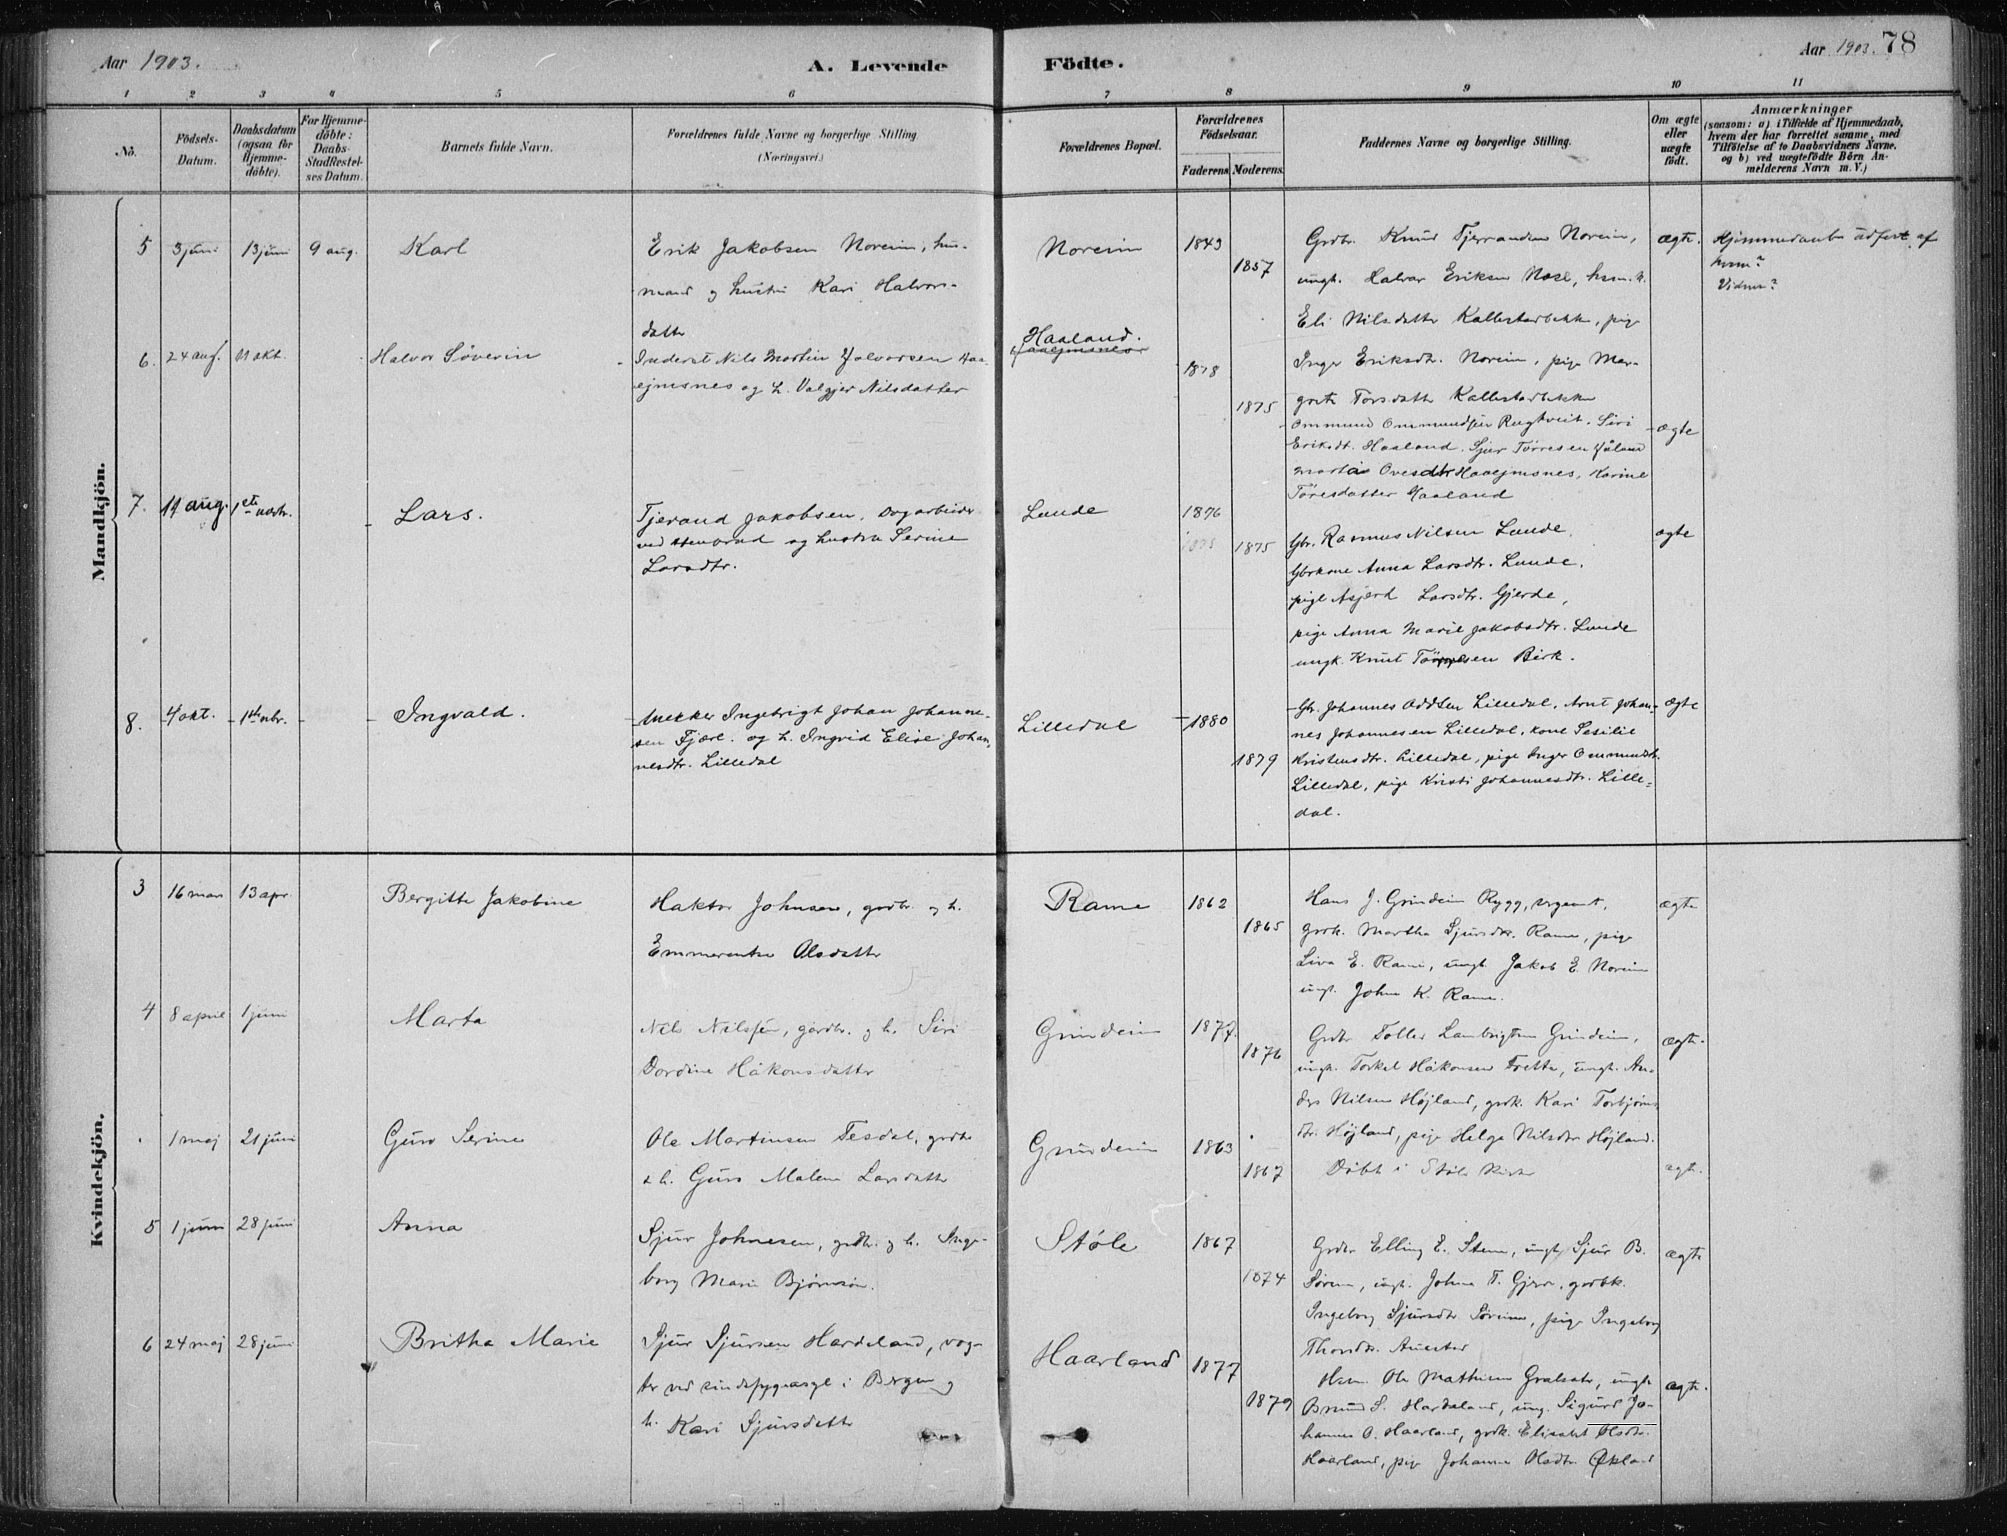 Aar 1903.
A. Levende Födte.
Aar 1903. 78
1 2 3 4 5 6 7 8 9 10 11
No.
Födsels-Datum.
Daabsdatum (ogsaa for Hjemme-döbte).
For Hjemme-döbte: Daabs-Stadfæstelses Datum.
Barnets fulde Navn.
Forældrenes fulde Navne og borgerlige Stilling. (Næringsvei.)
Forældrenes Bopæl.
Forældrenes Födselsaar. Faderens Moderens.
Faddernes Navne og borgerlige Stilling.
Om ægte eller uægte födt.
Anmærkninger
(saasom: a) i Tilfælde af Hjemmedaab, hvem der har forrettet samme, med Tilföielse af to Daabsvidners Navne, og b) ved uægtefödte Börn Anmelderens Navn m. V.)
Mandkjön.
5 3 juni 13 juni 9 aug. Karl
Erik Jakobsen Noreim, hus-
mand og hustru Kari Halvors-
datter
Noreim 1843 1857
Grdbr. Knud Tjerandsen Noreim,
ungk. Halvor Eriksen
Eli Nilsdatter Kallestadbekke, pige
Inger Eriksdtr. Noreim, pige Mar-
grete Torsdatter Kallestadbekke
ægte. Hjemmedaaben udført af
hvem?
Vidner?
6. 24 aug. 11 okt. Halvor Søverin
Inderst Nils Martin Halvorsen Haa-
ejmsnes og h. Valgjer Nilsdatter
Haaland.
1878 1875
Ommund Ommundsen Rugtveit. Siri
Eriksdt. Haaland. Sjur Tørresen Håland
Marta Ovesdtr Haaejmsnes, Karine
Tøresdatter Haaland
ægte
7. 11 aug. 1ste novbr. Lars.
Tjerand Jakobsen, Dagarbeider
ved stenbrud og hustru Serine
Larsdtr.
Lunde 1876 1875
Gbr. Rasmus Nilsen Lunde,
Gbrkone Anna Larsdtr. Lunde,
pige Asjerd Larsdtr. Gjerde,
pige Anna Marie Jakobsdtr. Lunde
ungk. Knut Birk.
ægte
8. 4 okt. 1ste nbr. Ingvald.
Snekker Ingebrigt Johan Johanne-
sen Fjære. og h. Ingrid Elise Johan-
nesdtr. Lilledal
Lilledal 1880 1879
Gbr. Johannes Oddsen Lilledal, Arnt Johan-
nes Johannesen Lilledal, kone Sesilie
Kristensdtr. Lilledal, pige Inger Ommundsdtr.
Lilledal, pige Kristi Johannesdtr. Lille-
dal.
ægte
Kvindekjön.
3 16 mars 13 apr Bergitte Jakobine
Haktor Johnsen, grdbr. og h.
Emmerentse Olsdatter
Rame 1862 1865
Hans J. Grindeim Rygg, sergeant,
grdk. Martha Sjursdtr. Rame, pige
Siva E. Rame, ungk. Jakob E. Noreim
ungk. John K. Rame.
ægte
4 8 april 1 juni Marta
Nils Nilssen, gårdbr. og h. Siri
Dordine Håkonsdatter
Grindeim 1877. 1876
Grdbr Tolles Lambrigtsen Grindeim,
ungk. Torkel Håkonsen Tvette, ungk. An-
ders Nilsen Højland, grdk. Kari Torbjørns-
dtr. Højland, pige Helga Nilsdtr Højland.
ægte.
1 maj 21 juni Guro Serine
Ole Martinsen Tesdal, grdbr
& h. Guro Malene Larsdatter
Grindeim 1863 1867
Døbt i Støle kirke
ægte.
5 1 juni 28 juni Anna
Sjur Johnesen, grdbr. og h. Inge-
borg Marie Bjørnson.
Støle 1867 1874
Grdbr Elling E. Stene, ungk Sjur B.
Søreim, ungk. Johne T. Gjerde, grdbk.
Ingeborg Sjursdtr Søreim, pige Ingeborg
Thorsdtr. Auestad
ægte
6 24 maj 28 juni Britha Marie
Sjur Sjursen Hardeland, vog-
ter ved sindssygeasyl i Bergen og
h. Kari Sjursdatter
Haarland 1877 1879
Hsm Ole Mathisen Gralsater, ungk
S. Hardeland, ung. Sigurd Jo-
hannes O. Haarland, grdk. Elisabet Olsdtr.
Haarland, pige Johanne Olsdtr. Økland
ægte.